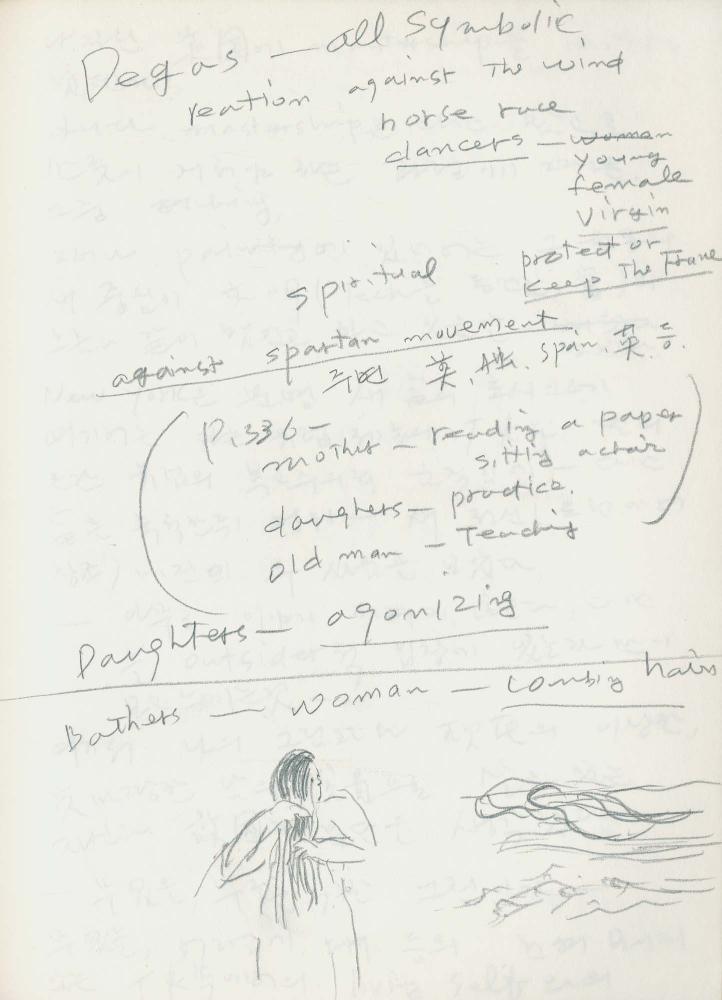 Degas — all symbolic
reation against The wind
horse race
dancers — woman
young
female
virgin
spiritual protect or
keep The Frame
against spartan movement
주변 英, span, 英
P.336 —
mother — reading a paper
sittig a chair
daughers — practice.
old man — Teaching
Daughters — agonizing
Bathers — woman — combig hairs